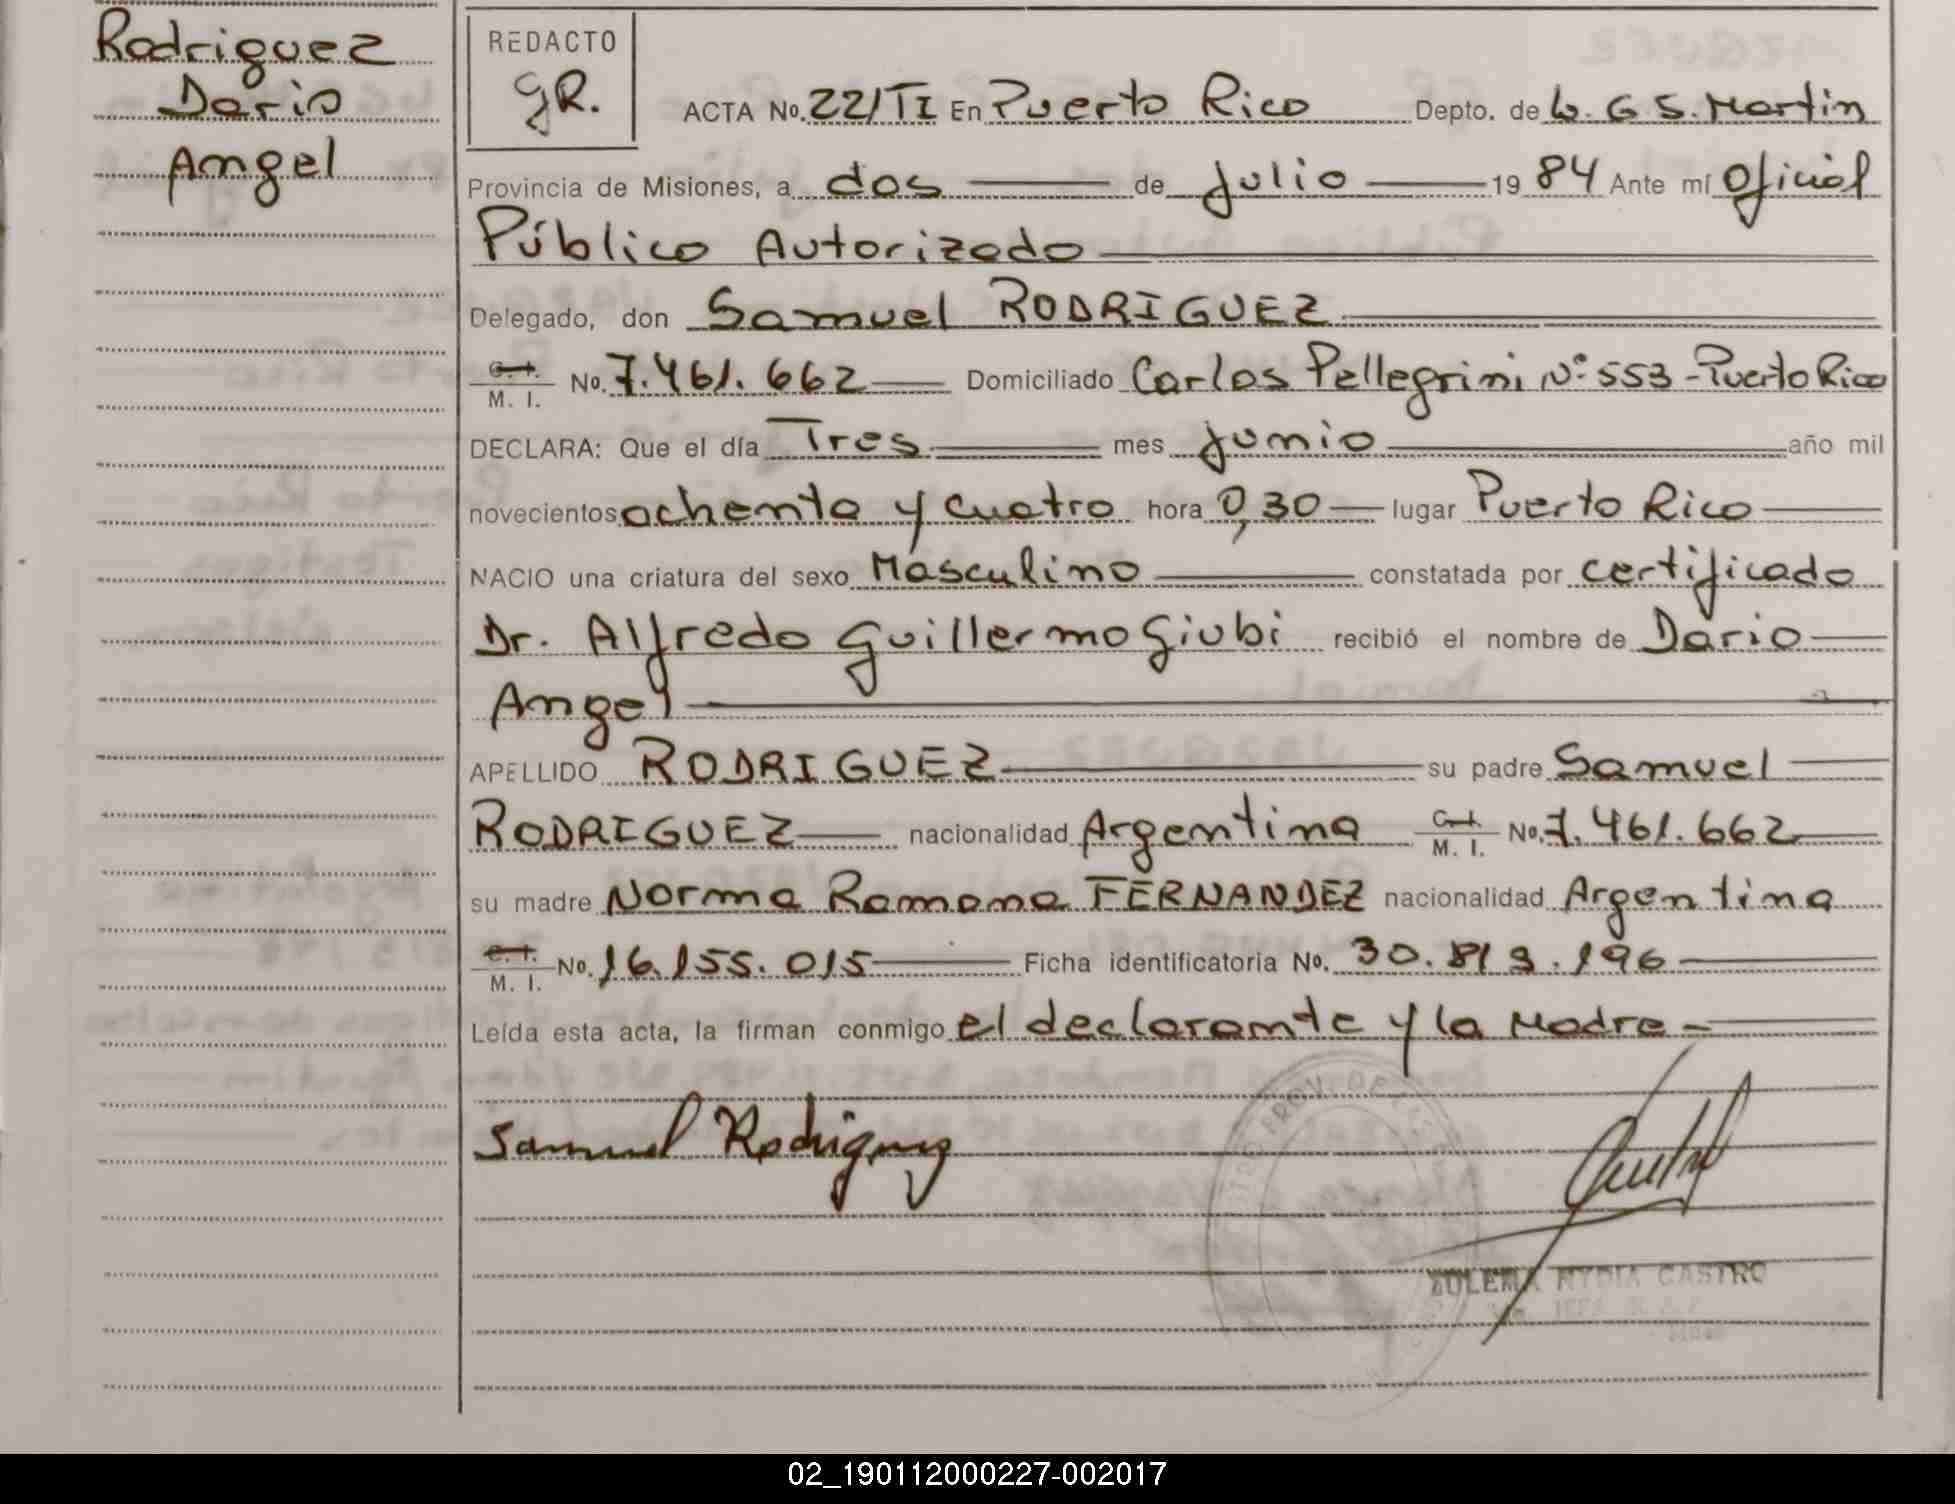 Rodriguez
Dario
Angel
REDACTO
GR.
ACTA No. 22/TI En Puerto Rico Depto. de L. G S. Martin
Provincia de Misiones, a dos de Julio 19 84 Ante mí Oficial
Público Autorizado
Delegado, don Samuel RODRIGUEZ
C. I.
M. I. No. 7.461.662 Domiciliado Carlos Pellegrini Nº 553 - Puerto Rico
DECLARA: Que el día Tres mes Junio año mil
novecientos ochenta y cuatro hora 0,30 lugar Puerto Rico
NACIO una criatura del sexo Masculino constatada por certificado
Dr. Alfredo Guillermo Giubi recibió el nombre de Dario
Angel
APELLIDO RODRIGUEZ su padre Samuel
RODRIGUEZ nacionalidad Argentina C. I.
M. I. No. 7.461.662
su madre Norma Ramona FERNANDEZ nacionalidad Argentina
C. I.
M. I. No. 16.155.015 Ficha identificatoria No. 30.813.196
Leída esta acta, la firman conmigo el declarante y la Madre -
Samuel Rodriguez
ZULEMA NYDIA CASTRO
02_190112000227-002017